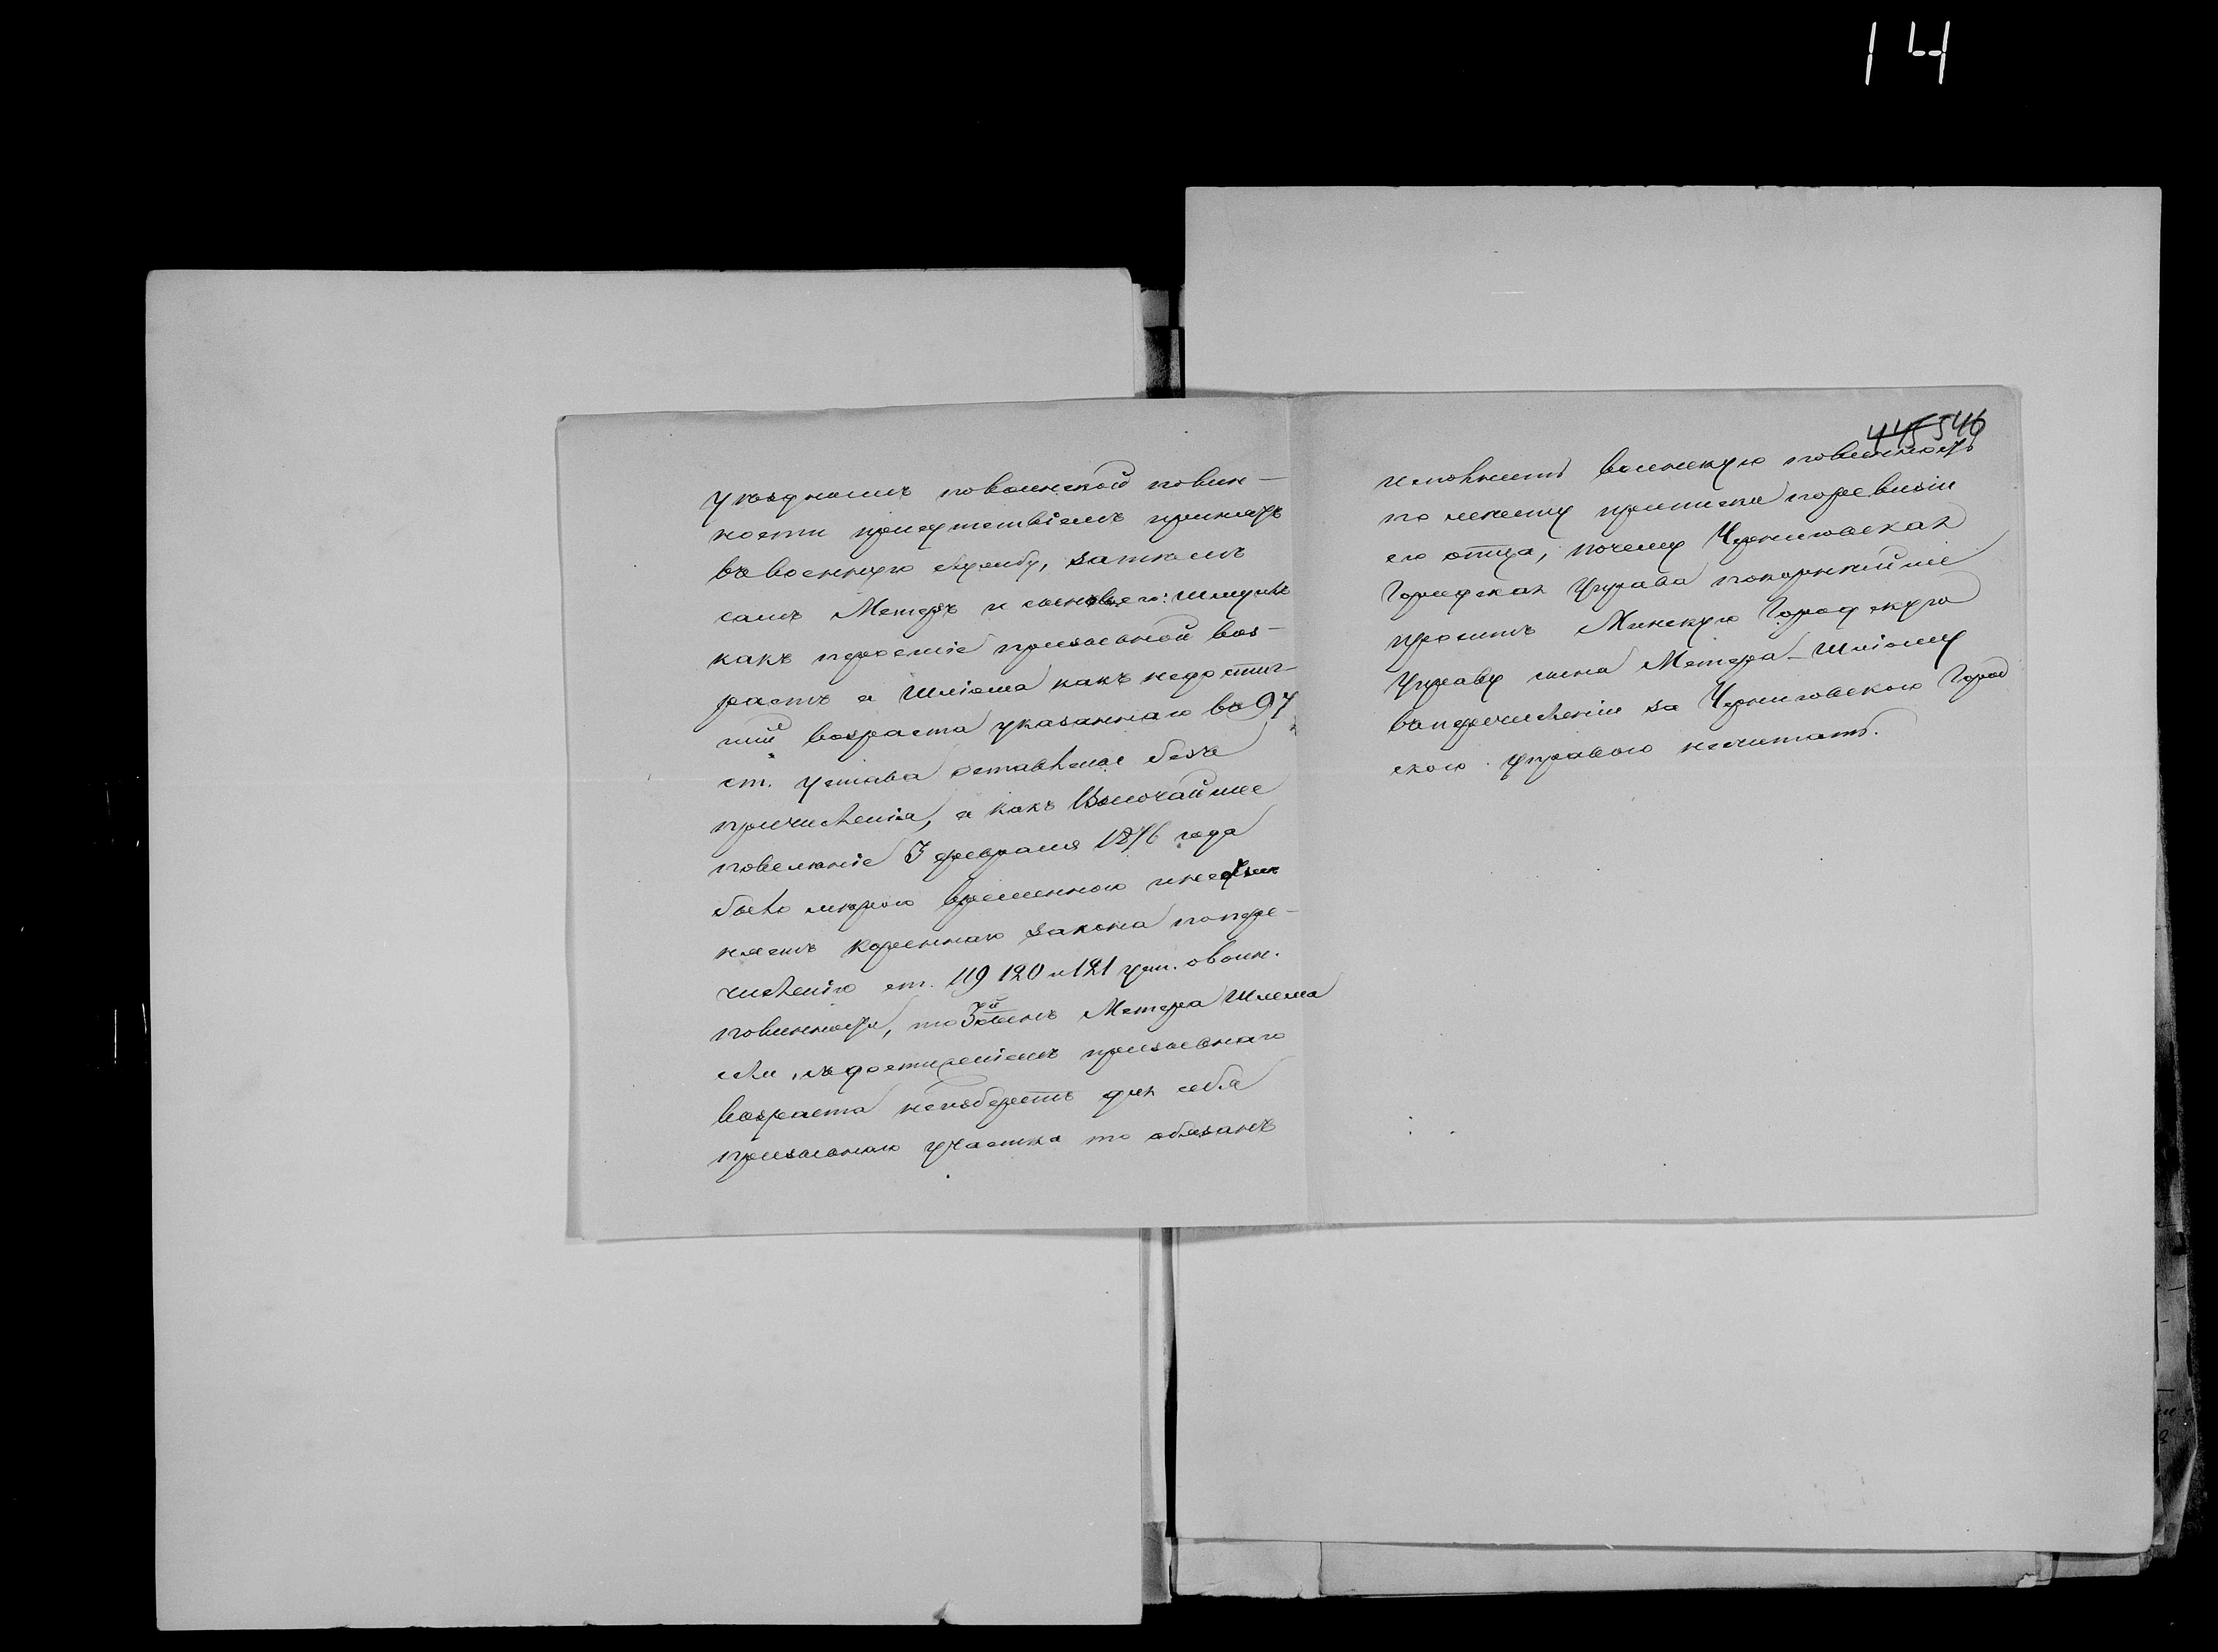 14
445 546
уѣзднымъ по воинской повин-
ности присутствіемъ принятъ
въ военную службу, затѣмъ
самъ Метеръ и сыновье его: Шмуилъ
какъ перешедшіе призывной воз-
растъ а Шліома какъ недостиг-
шій возраста указаннаго въ 97
ст. устава оставлены безъ
причисленія, а какъ Высочайшее
повелѣніе 3 февраля 1876 года
было мѣрою временною и не
кореннаго закона попере-
численію ст. 119 120 и 121 уст. о воин.
повинности, то 3й сынъ Метера Шлема
если съ достиженіемъ призывнаго
возраста неизберетъ для себя
призывнаго участка то обязанъ
исполнить воинскую повинность
по мѣсту приписки по ревизіи
его отца, почему Черниговская
Городская Управа покорнѣйше
проситъ Минскую Городскую
Управу сына Метера - Шліому
въ перечисленіи за Черниговскою Город
скою Управою несчитать.